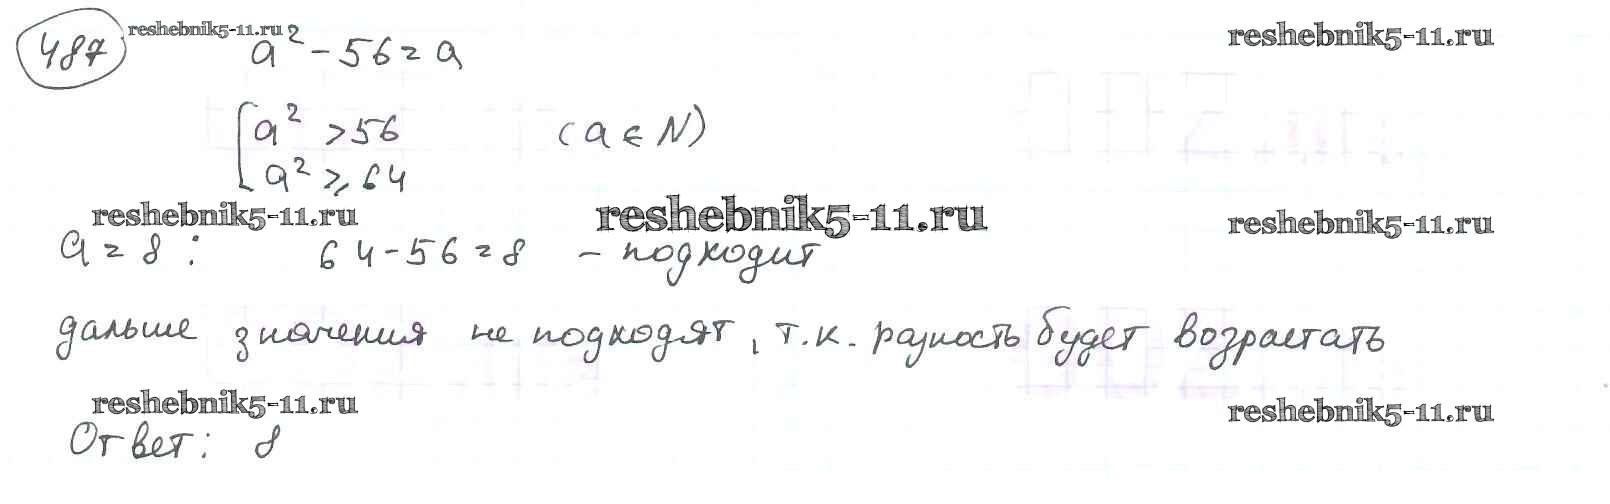 487 reshebnik5-11.ru a² - 56 = a reshebnik5-11.ru
[ a² > 56 (a ∈ N)
a² ≥ 64
reshebnik5-11.ru reshebnik5-11.ru reshebnik5-11.ru
a = 8 : 64 - 56 = 8 - подходит
дальше значения не подходят, т.к. разность будет возрастать
reshebnik5-11.ru reshebnik5-11.ru
Ответ: 8